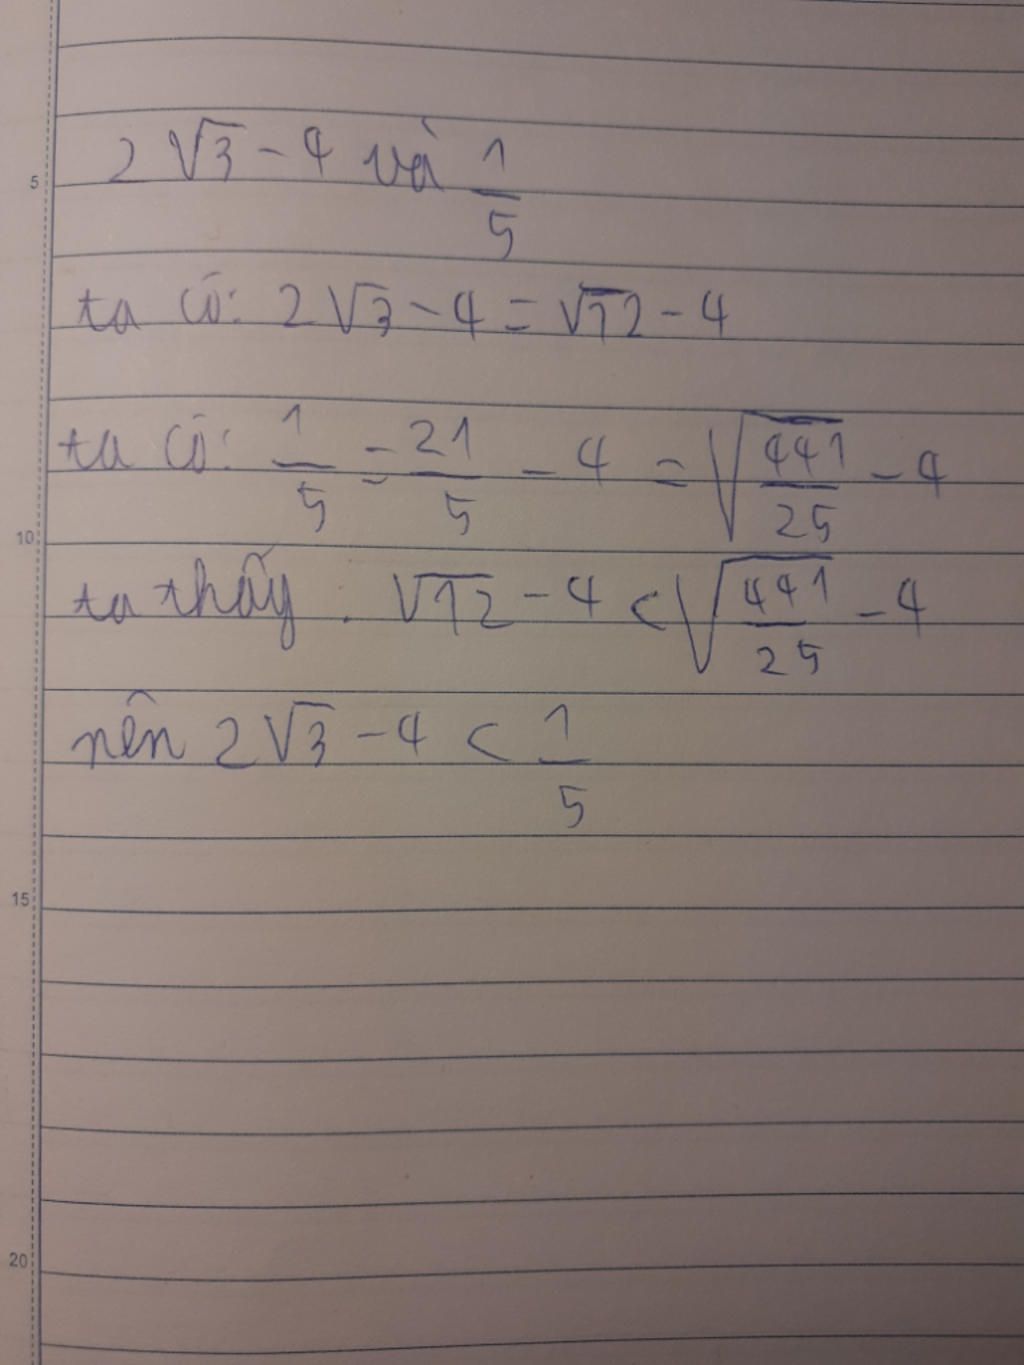 5
2√3 - 4 và 1/5
ta có: 2√3 - 4 = √12 - 4
ta có: 1/5 = 21/5 - 4 = √(441/25) - 4
10
ta thấy: √12 - 4 < √(441/25) - 4
nên 2√3 - 4 < 1/5
15
20